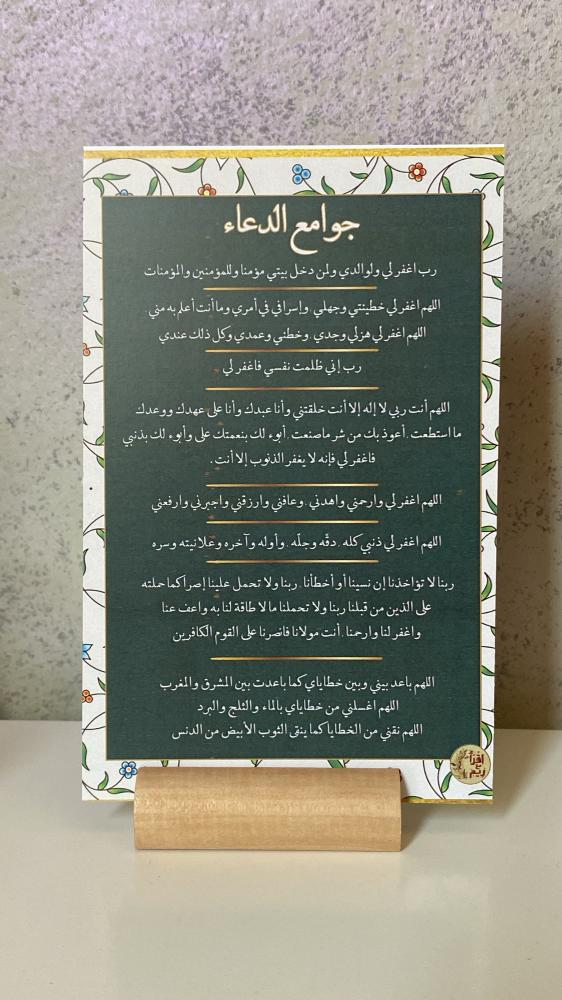 جوامع الدعاء
رب اغفر لي ولوالدي ولمن دخل بيتي مؤمنا وللمؤمنين والمؤمنات
اللهم اغفر لي خطيئتي وجهلي، وإسرافي في أمري وما أنت أعلم به مني،
اللهم اغفر لي هزلي وجدي، وخطئي وعمدي وكل ذلك عندي
رب إني ظلمت نفسي فاغفر لي
اللهم أنت ربي لا إله إلا أنت خلقتني وأنا عبدك وأنا على عهدك ووعدك
ما استطعت، أعوذ بك من شر ما صنعت، أبوء لك بنعمتك علي وأبوء لك بذنبي
فاغفر لي فإنه لا يغفر الذنوب إلا أنت.
اللهم اغفر لي وارحمني واهدني، وعافني وارزقني واجبرني وارفعني
اللهم اغفر لي ذنبي كله، دقّه وجلّه، وأوله وآخره وعلانيته وسره
ربنا لا تؤاخذنا إن نسينا أو أخطأنا، ربنا ولا تحمل علينا إصرا كما حملته
على الذين من قبلنا ربنا ولا تحملنا ما لا طاقة لنا به واعف عنا
واغفر لنا وارحمنا، أنت مولانا فانصرنا على القوم الكافرين
اللهم باعد بيني وبين خطاياي كما باعدت بين المشرق والمغرب
اللهم اغسلني من خطاياي بالماء والثلج والبرد
اللهم نقني من الخطايا كما ينقى الثوب الأبيض من الدنس
اقرأ